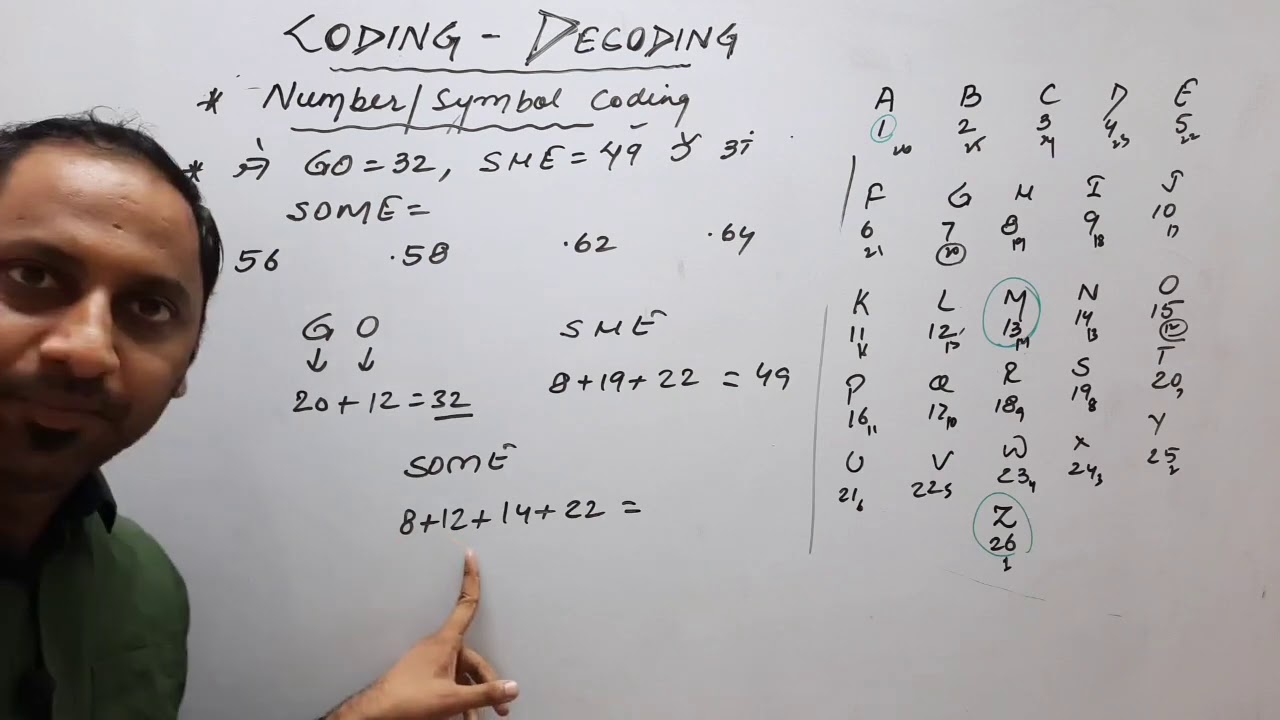 CODING - DECODING
* Number/Symbol Coding
* GO = 32, SHE = 49
SOME =
56 .58 .62 .64
G O
↓ ↓
20 + 12 = 32
SHE
8 + 19 + 22 = 49
SOME
8 + 12 + 14 + 22 =
A B C D E
1 2 3 4 5
26 25 24 23 22
F G H I J
6 7 8 9 10
21 20 19 18 17
K L M N O
11 12 13 14 15
15 14 13 12
P Q R S T
16 17 18 19 20
11 10 9 8 7
U V W X Y
21 22 23 24 25
6 5 4 3 2
Z
26
1